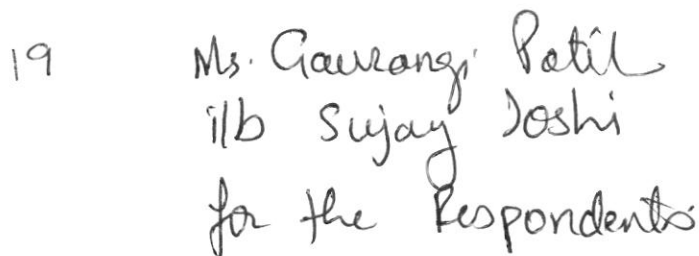 19 Ms. Gaurangi Patil
i/b Sujay Joshi
for the Respondents